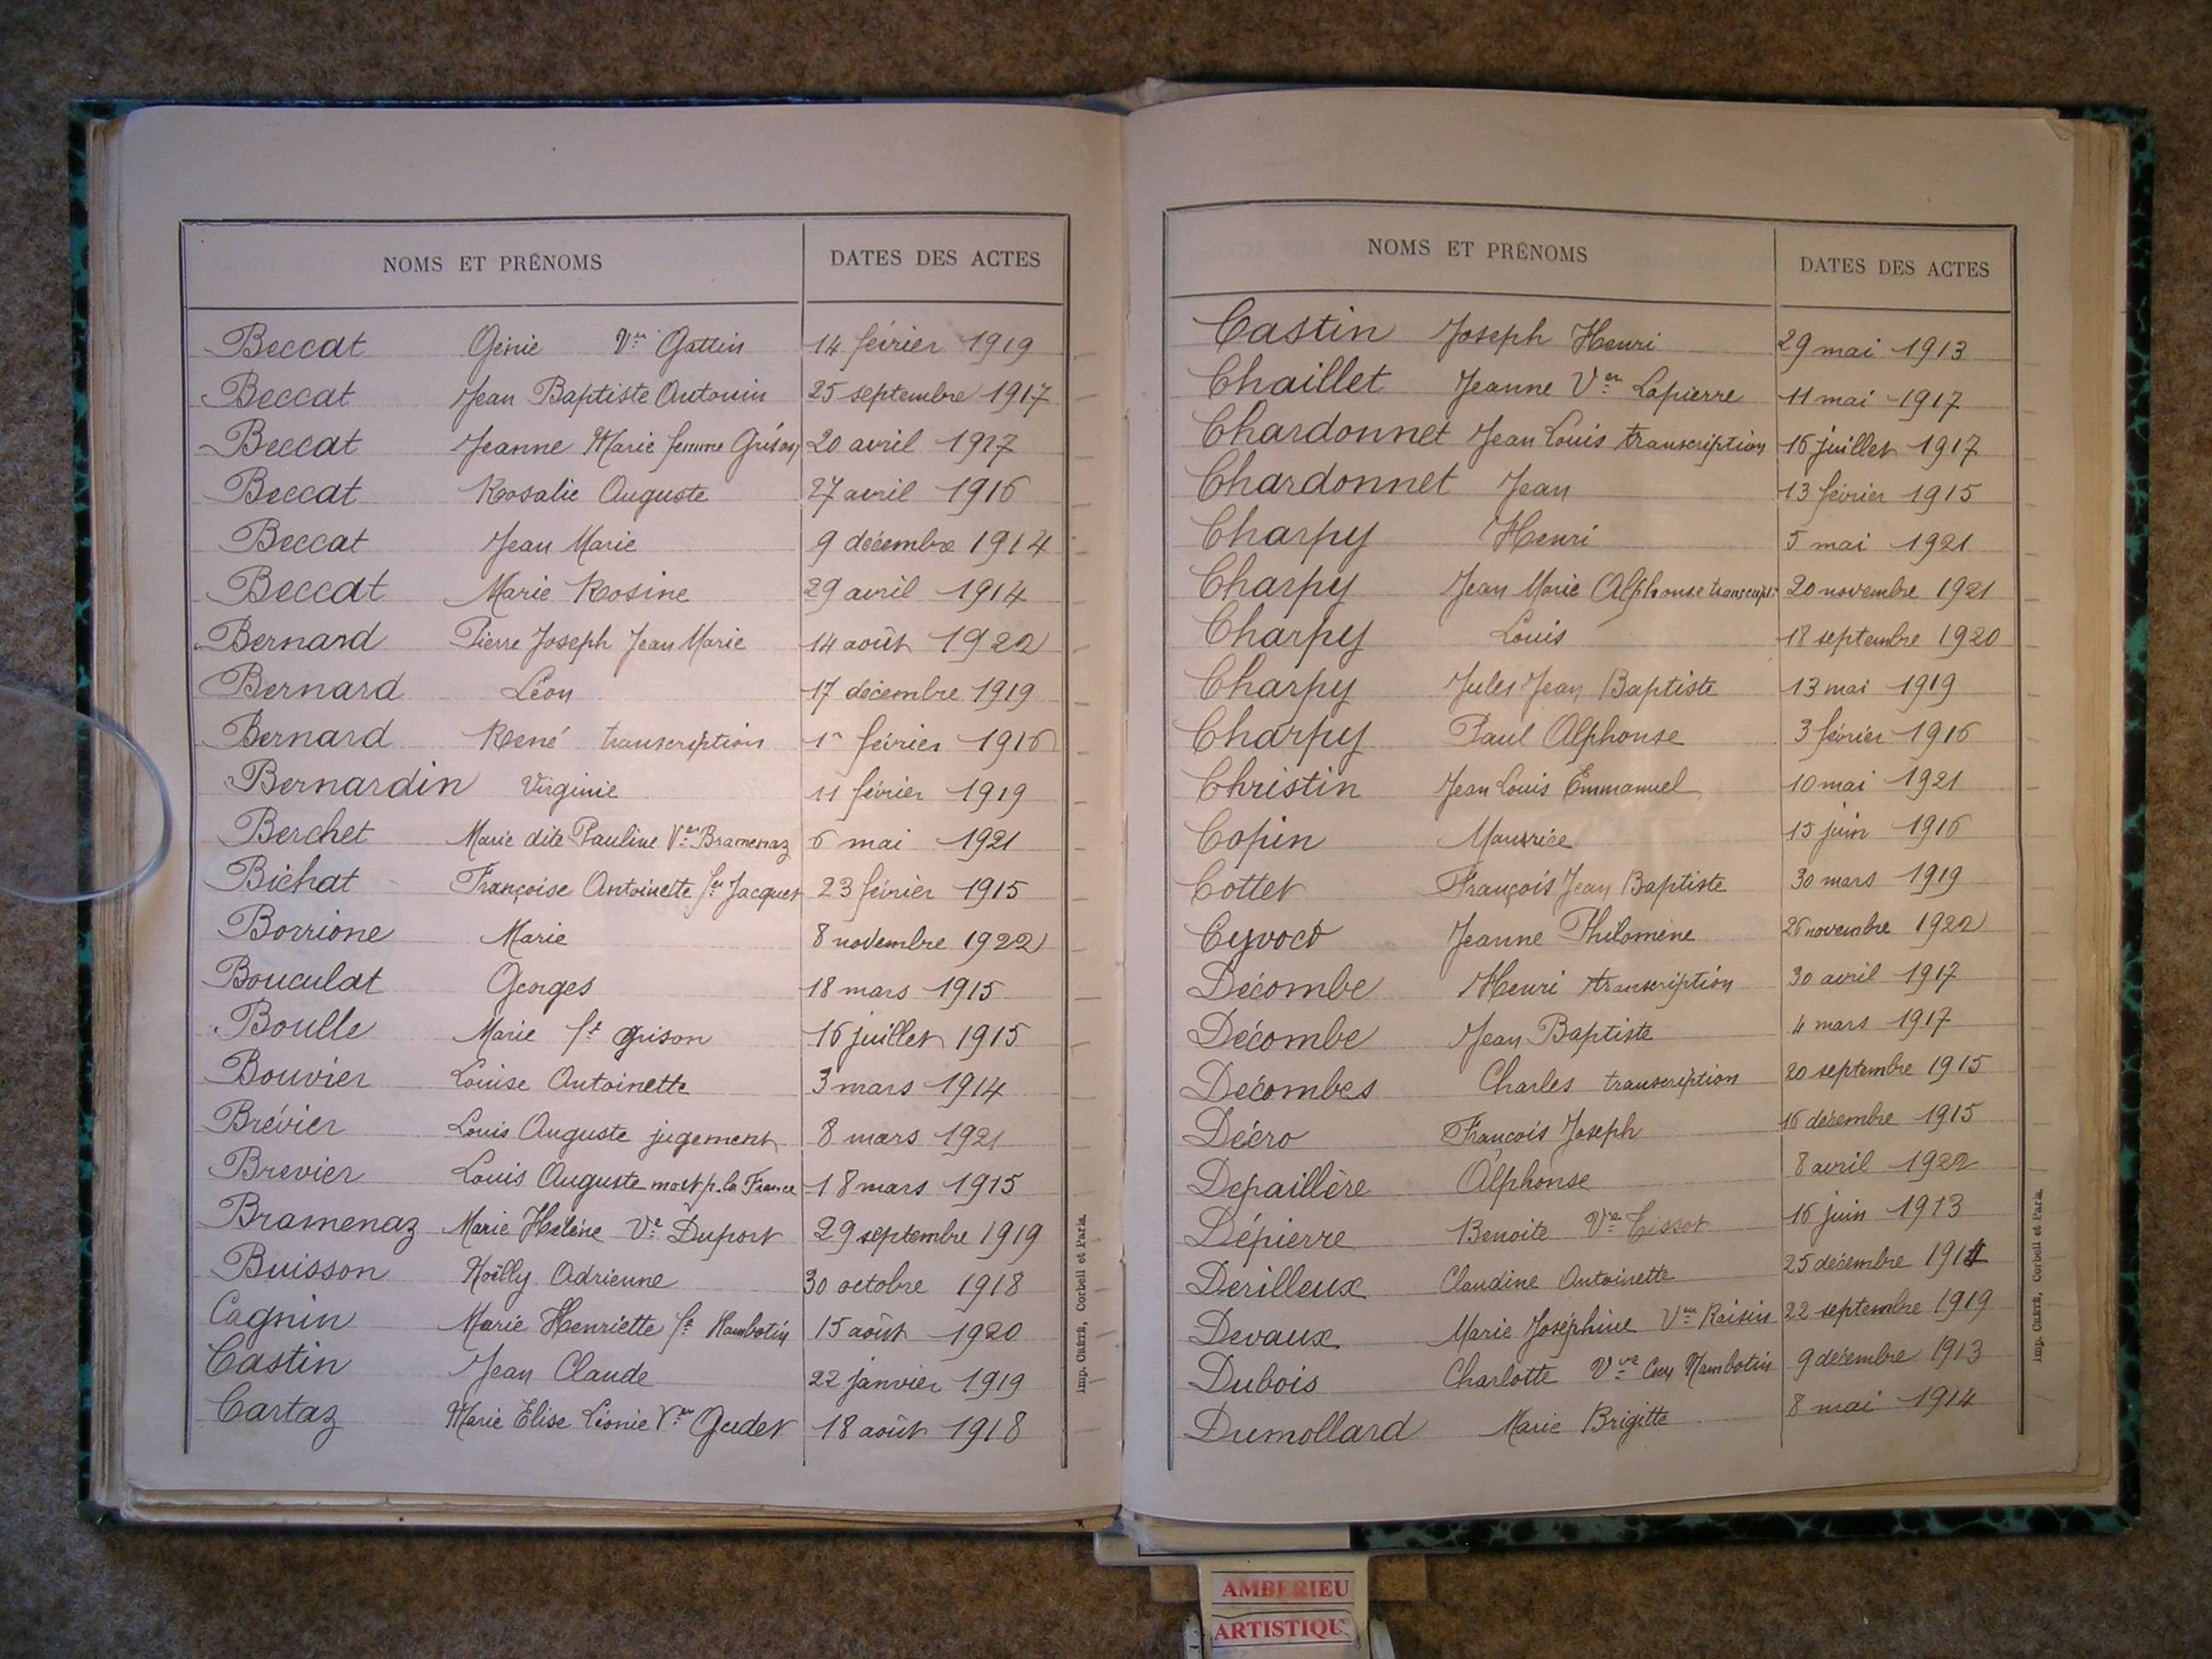 NOMS ET PRÉNOMS DATES DES ACTES
Beccat Génie Vve Gattin 14 février 1919
Beccat Jean Baptiste Antonin 25 septembre 1917
Beccat Jeanne Marie femme Grison 20 avril 1917
Beccat Rosalie Auguste 27 avril 1916
Beccat Jean Marie 9 décembre 1914
Beccat Marie Rosine 29 avril 1914
Bernard Pierre Joseph Jean Marie 14 août 1922
Bernard Léon 17 décembre 1919
Bernard René transcription 1er février 1916
Bernardin Virginie 11 février 1919
Berchet Marie dite Pauline Vve Bramenaz 6 mai 1921
Bichat Françoise Antoinette fe Jacquet 23 février 1915
Borrione Marie 8 novembre 1922
Bouculat Georges 18 mars 1915
Boulle Marie fe Grison 16 juillet 1915
Bouvier Louise Antoinette 3 mars 1914
Brévier Louis Auguste jugement 8 mars 1921
Brevier Louis Auguste mort p. la France 18 mars 1915
Bramenaz Marie Hélène Ve Duport 29 septembre 1919
Buisson Noëlly Adrienne 30 octobre 1918
Cagnin Marie Henriette fe Hambotin 15 août 1920
Castin Jean Claude 22 janvier 1919
Cartaz Marie Elise Léonie Vve Gudet 18 août 1918
Imp. CRÉTÉ, Corbeil et Paris.
NOMS ET PRÉNOMS DATES DES ACTES
Castin Joseph Henri 29 mai 1913
Chaillet Jeanne Vve Lapierre 11 mai 1917
Chardonnet Jean Louis transcription 16 juillet 1917
Chardonnet Jean 13 février 1915
Charpy Henri 5 mai 1921
Charpy Jean Marie Alphonse transcript. 20 novembre 1921
Charpy Louis 18 septembre 1920
Charpy Jules Jean Baptiste 13 mai 1919
Charpy Paul Alphonse 3 février 1916
Christin Jean Louis Emmanuel 10 mai 1921
Copin Maurice 15 juin 1916
Cottet François Jean Baptiste 30 mars 1919
Cyvoct Jeanne Philomène 26 novembre 1922
Décombe Henri transcription 30 avril 1917
Décombe Jean Baptiste 4 mars 1917
Décombes Charles transcription 20 septembre 1915
Décro François Joseph 16 décembre 1915
Depaillère Alphonse 8 avril 1922
Dépierre Benoite Vve Tissot 16 juin 1913
Derilleux Claudine Antoinette 25 décembre 1914
Devaux Marie Joséphine Vve Raisin 22 septembre 1919
Dubois Charlotte Vve Hambotin 9 décembre 1913
Dumollard Marie Brigitte 8 mai 1914
Imp. CRÉTÉ, Corbeil et Paris.
AMBERIEU
ARTISTIQU